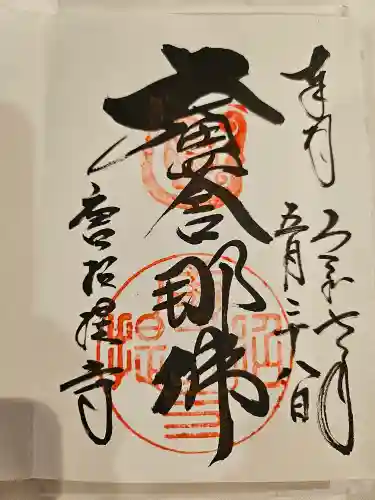 奉拝
令和七年
五月二十八日
盧舎那佛
唐招提寺